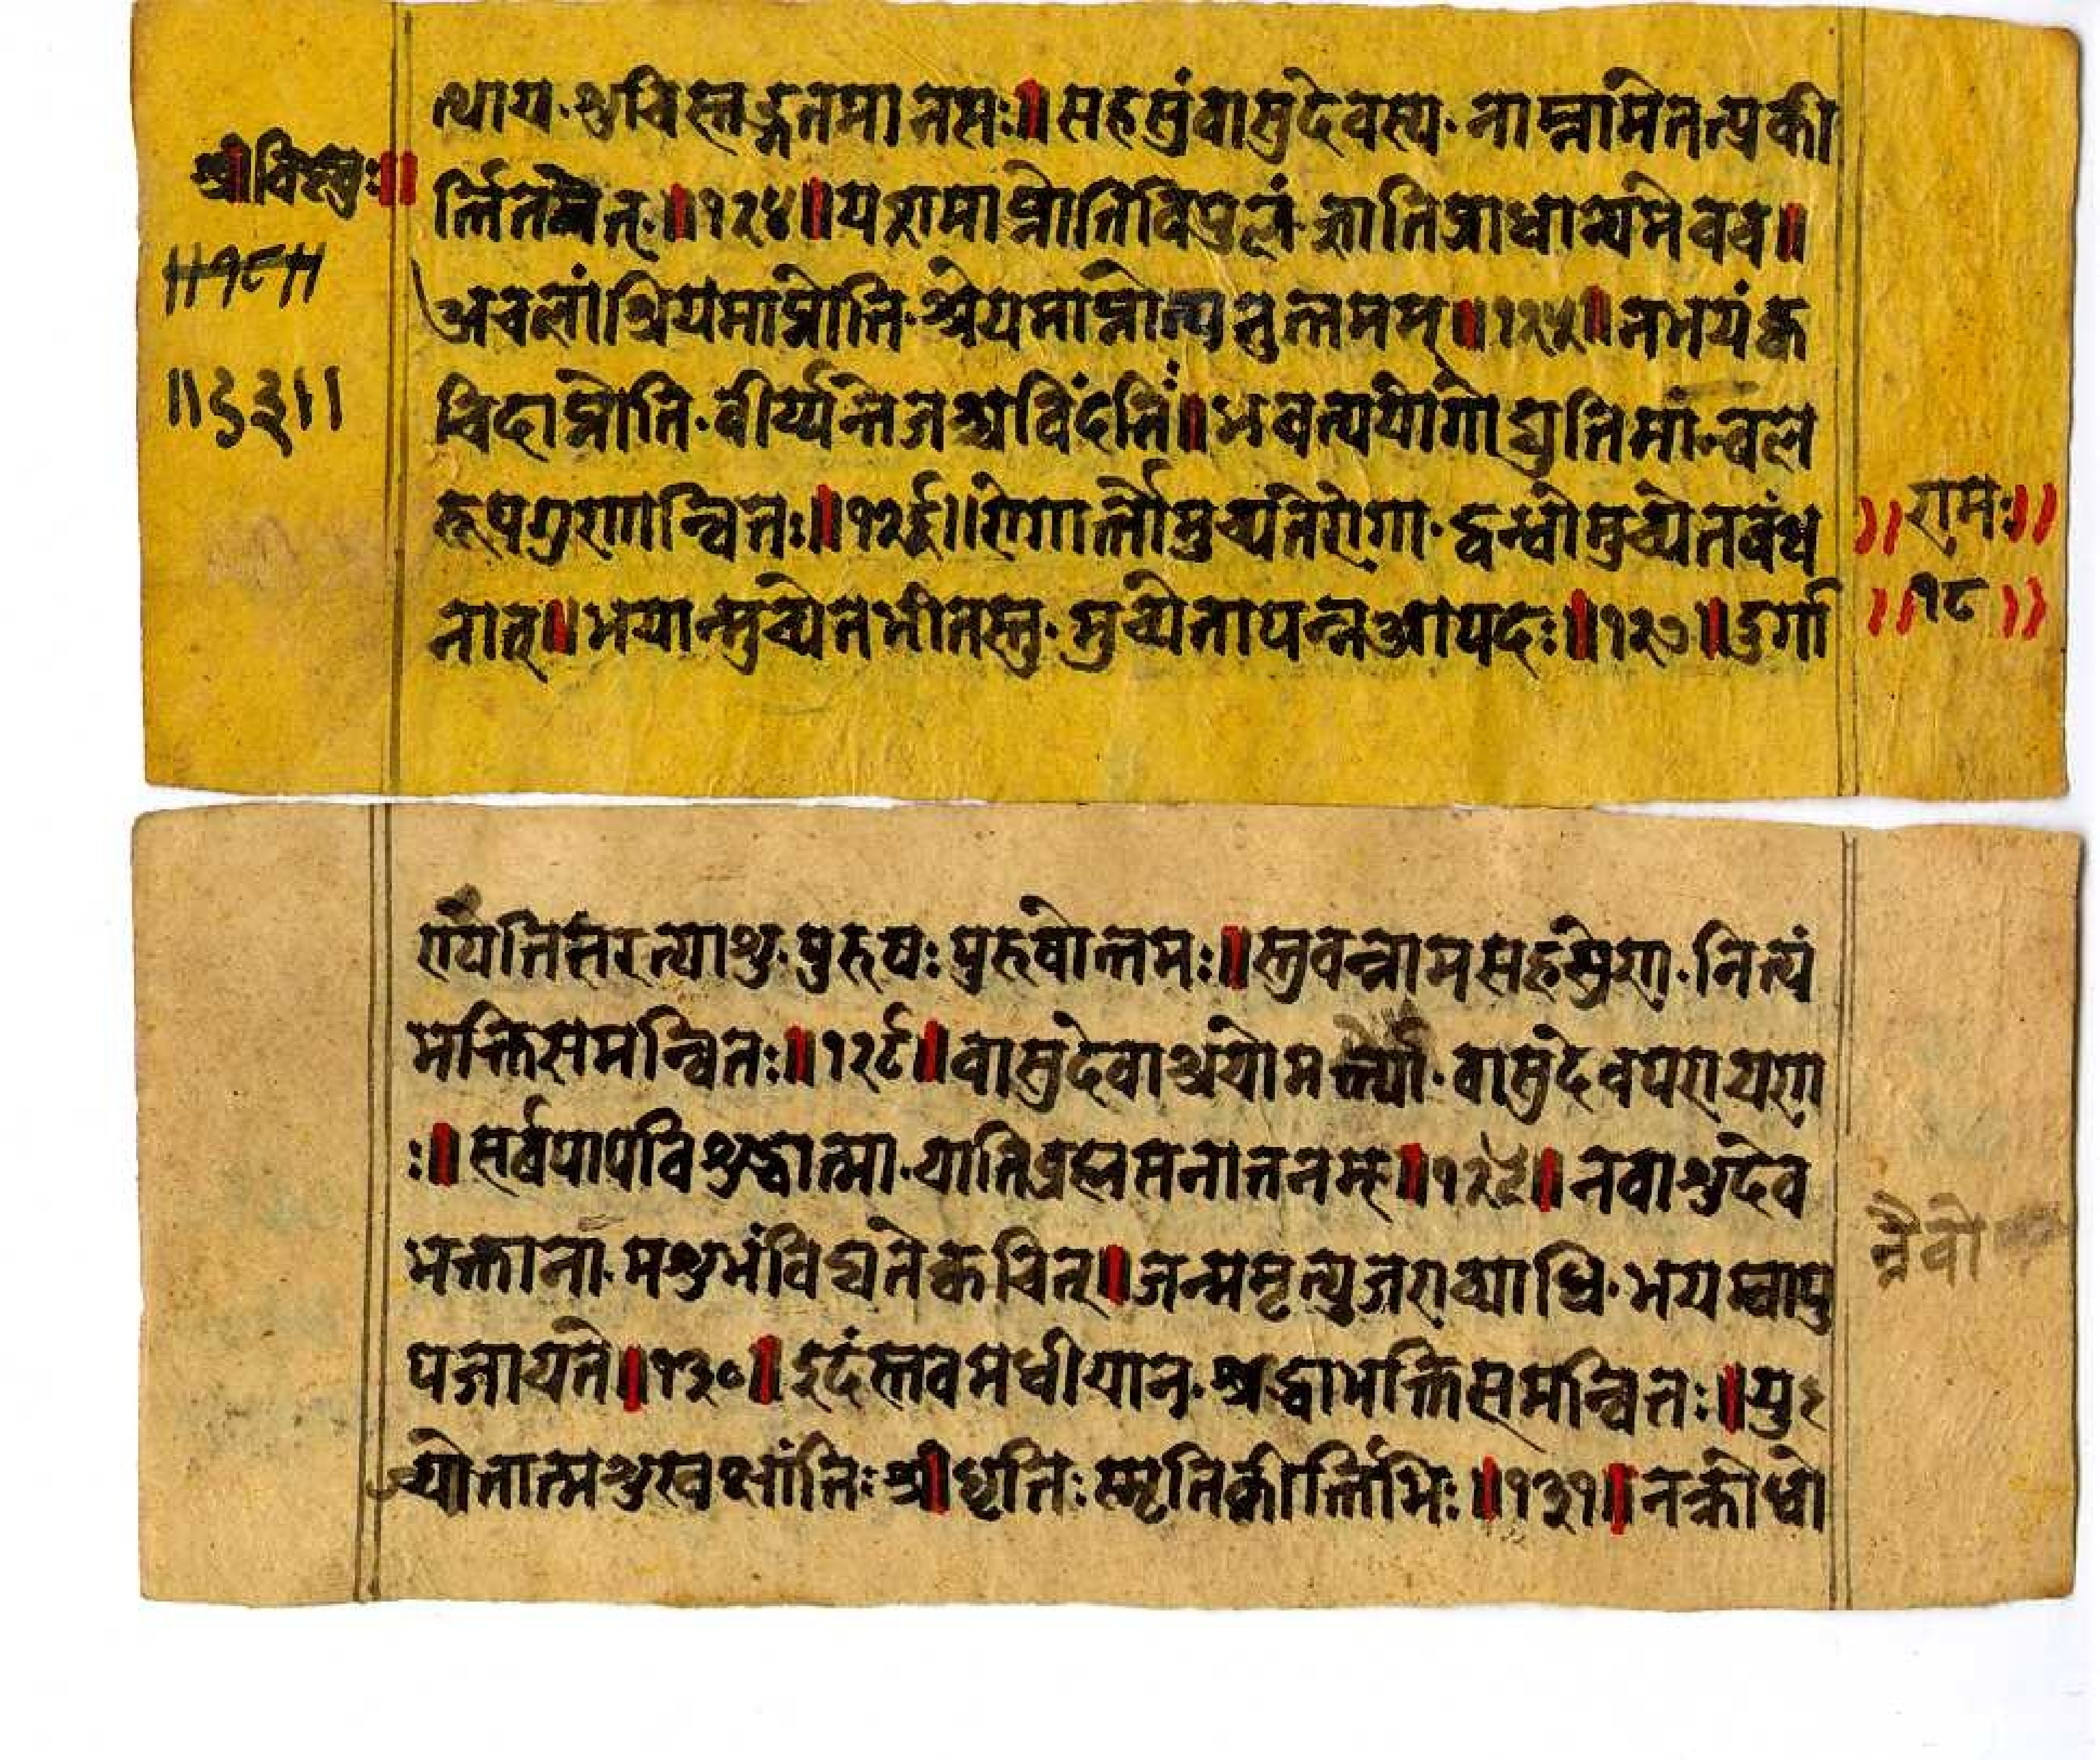 त्थाय·शुचिस्तद्गतमानसः॥सहस्रंवासुदेवस्य·नाम्नामेतत्प्रकी
श्रीविष्णुः॥
॥१८॥
॥६३॥
र्त्तितवेत्·॥१२४॥यशमाप्नोतिविपुलं·ज्ञातिप्राधान्यमेवच॥
अचलांश्रियमाप्नोति·श्रेयमाप्नोत्यनुत्तमम्॥१२५॥नभयंक्व
चिदाप्नोति·वीर्य्यन्तेजश्चविंदंति॥भवत्यर्योगोद्युतिमांन्वल
रूपगुणान्वितः॥१२६॥रोगार्त्तोमुच्यतेरोगा·द्वन्धोमुच्येतबंध
नात्॥भयान्मुच्येतभीतस्तु·मुच्येतापन्नआपदः॥१२७॥दुर्गा
॥रामः॥
॥१८॥
ण्यतितरत्याशु·पुरुषः पुरुषोत्तमः॥स्तुवन्नामसहस्रेण·नित्यं
भक्तिसमन्वितः॥१२८॥वासुदेवाश्रयोमर्त्त्यो·वासुदेवपरायण
ः॥सर्वपापविशुद्धात्मा·यातिब्रह्मसनातनम्॥१२९॥नवाशुदेव
भक्ताना·मशुभंविद्यतेक्वचित्॥जन्ममृत्युजराव्याधि·भयम्वापु
नैवो
पजायते॥१३०॥इदंस्तवमधीयान·श्रद्धाभक्तिसमन्वितः॥यु
ज्योतात्मशुखक्षांतिः श्रीधृतिः स्मृतिकीर्त्तिभिः॥१३१॥नक्रोधो